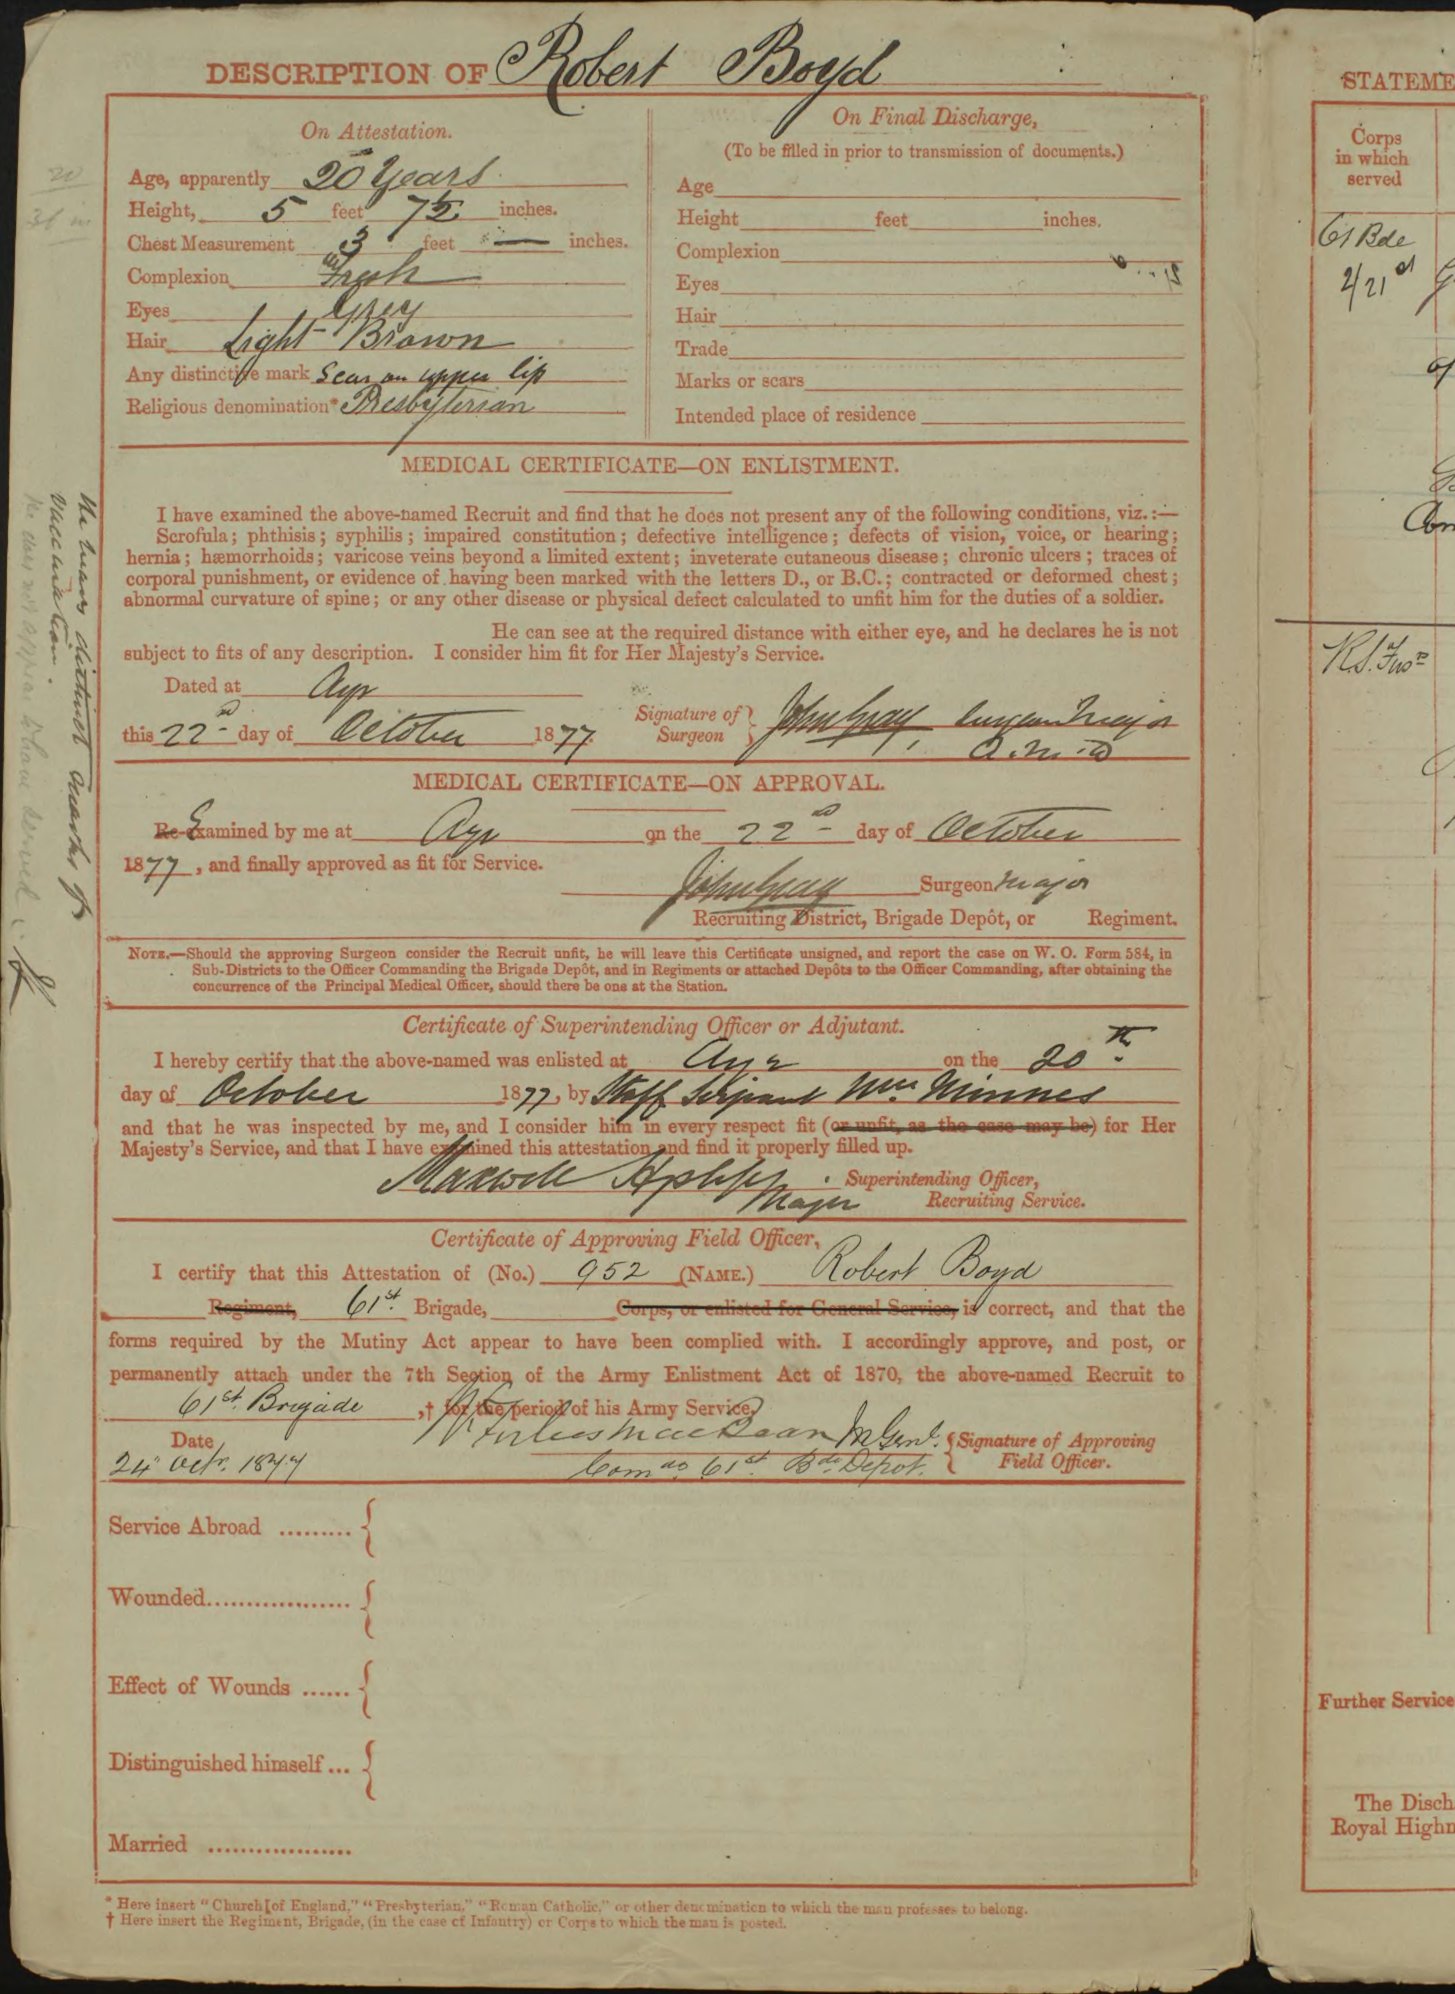 DESCRIPTION OF Robert Boyd
On Attestation.
Age, apparently 20 Years
Height, 5 feet 7½ inches.
Chest Measurement 3 feet — inches.
Complexion Fresh
Eyes Grey
Hair Light Brown
Any distinctive mark Scar on upper lip
Religious denomination* Presbyterian
On Final Discharge,
(To be filled in prior to transmission of documents.)
Age
Height feet inches.
Complexion
Eyes
Hair
Trade
Marks or scars
Intended place of residence
MEDICAL CERTIFICATE—ON ENLISTMENT.
I have examined the above-named Recruit and find that he does not present any of the following conditions, viz.:—
Scrofula; phthisis; syphilis; impaired constitution; defective intelligence; defects of vision, voice, or hearing;
hernia; hæmorrhoids; varicose veins beyond a limited extent; inveterate cutaneous disease; chronic ulcers; traces of
corporal punishment, or evidence of having been marked with the letters D., or B.C.; contracted or deformed chest;
abnormal curvature of spine; or any other disease or physical defect calculated to unfit him for the duties of a soldier.
He can see at the required distance with either eye, and he declares he is not
subject to fits of any description. I consider him fit for Her Majesty's Service.
Dated at Ayr
this 22nd day of October 1877.
Signature of Surgeon John Gray Surgeon Major
A.M.D
MEDICAL CERTIFICATE—ON APPROVAL.
Re-Examined by me at Ayr on the 22nd day of October
1877, and finally approved as fit for Service.
John Gray Surgeon Major
Recruiting District, Brigade Depôt, or Regiment.
NOTE.—Should the approving Surgeon consider the Recruit unfit, he will leave this Certificate unsigned, and report the case on W. O. Form 584, in
Sub-Districts to the Officer Commanding the Brigade Depôt, and in Regiments or attached Depôts to the Officer Commanding, after obtaining the
concurrence of the Principal Medical Officer, should there be one at the Station.
Certificate of Superintending Officer or Adjutant.
I hereby certify that the above-named was enlisted at Ayr on the 20th
day of October 1877, by Staff Serjeant Wm. Minnes
and that he was inspected by me, and I consider him in every respect fit (or unfit, as the case may be) for Her
Majesty's Service, and that I have examined this attestation and find it properly filled up.
Maxwell Major
Superintending Officer,
Recruiting Service.
Certificate of Approving Field Officer,
I certify that this Attestation of (No.) 952 (NAME.) Robert Boyd
Regiment, 61st. Brigade, Corps, or enlisted for General Service, is correct, and that the
forms required by the Mutiny Act appear to have been complied with. I accordingly approve, and post, or
permanently attach under the 7th Section of the Army Enlistment Act of 1870, the above-named Recruit to
61st. Brigade ,† for the period of his Army Service.
Date
24 Octr. 1877
Forbes MacBean M Genl.
Comdg 61st. Bde Depot.
Signature of Approving
Field Officer.
Service Abroad
Wounded
Effect of Wounds
Distinguished himself
Married
* Here insert "Church of England," "Presbyterian," "Roman Catholic," or other denomination to which the man professes to belong.
† Here insert the Regiment, Brigade, (in the case of Infantry) or Corps to which the man is posted.
He bears distinct marks of
vaccination.
He does not appear to have served
STATEME
Corps
in which
served
61 Bde
2/21st
R.S. Fusrs
Further Service
The Disch
Royal Highn